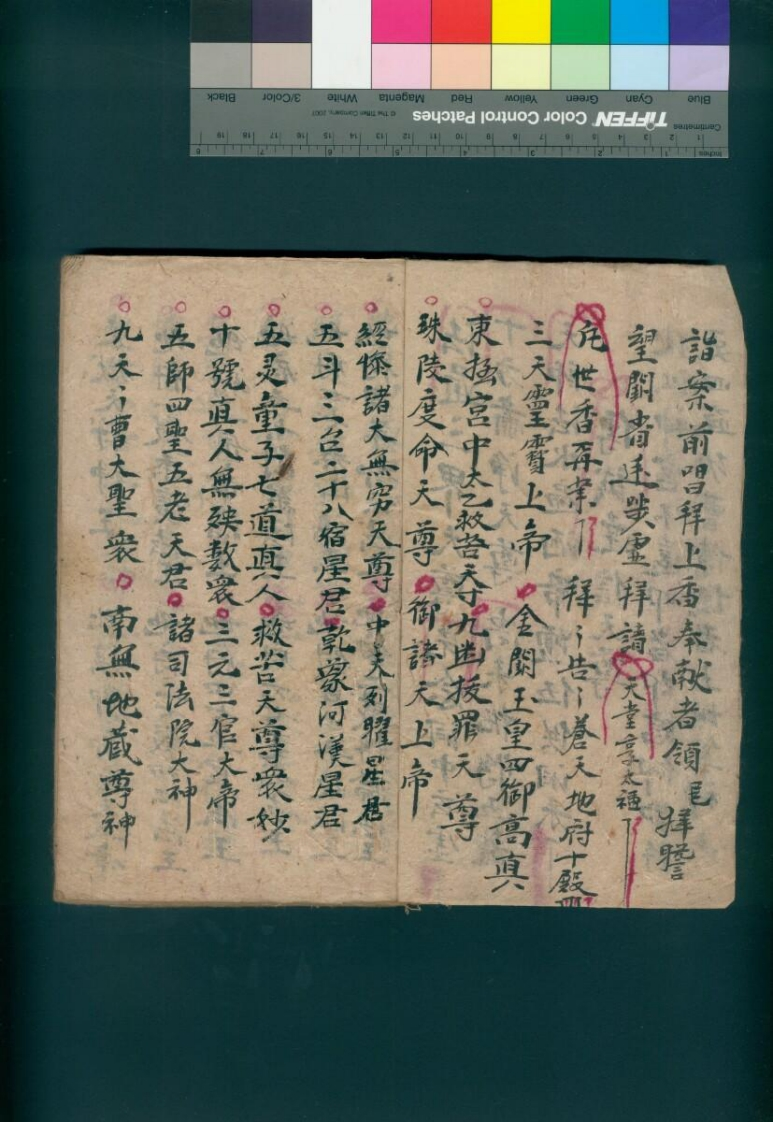 詣案前唱拜上香奉献者領毛拜瞻
望闕省迷㷼虛拜請天堂享太福
世香再業拜〻告〻蒼天地府十殿
三天靈寶上帝金闕玉皇四御高真
東極宮中太乙救苦天寸九幽拔罪天尊
珠陵度命天尊御諸天上帝
經悕諸大無穷天尊中天列曜星君
五斗三台二十八宿星君乾象河漢星君
五灵童子七道真人救苦天尊衆妙
十號真人無殃数衆三元三官大帝
五師四聖五老天君諸司法院大神
九天〻曹大聖衆南無地藏尊神
Inches
Centimetres
TIFFEN Color Control Patches
© The Tiffen Company, 2007
Blue Cyan Green Yellow Red Magenta White 3/Color Black